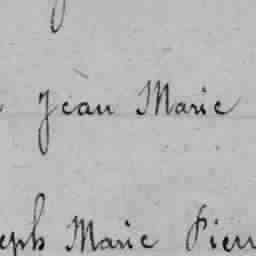 Jean Marie
eph Marie Pierr